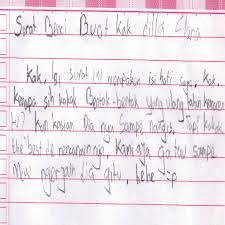 Surat Benci Buat kak dilla Clara
Kak, Ini surat ini merupakan isi hati saya, kak,
kenapa sih kakak Bentak-bentak yang ulang tahun kemaren
itu? Kan kasian Dia nya sampe nangis, Tapi kakak
the best deh rencananya, kami aja ga tau sampe
Mau ngerjain dia gitu, hehe :p